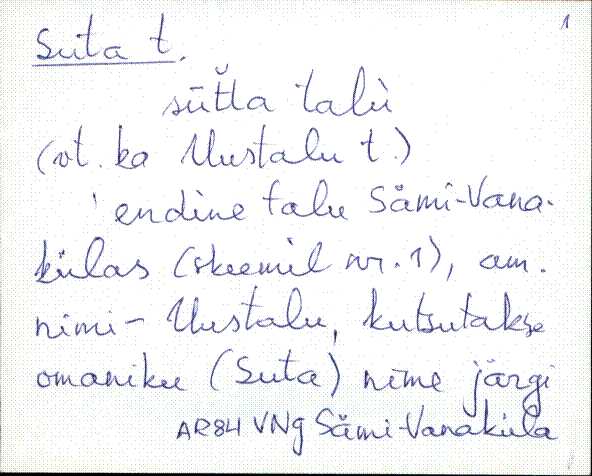 1
Suta t.
sūt̆ta talù
(vt. ka Uustalu t.)
endine talu Sämi-Vana-
külas (skeemil nr. 1), am.
nimi - Uustalu, kutsutakse
omaniku (Suta) nime järgi
AR84 VNg Sämi-Vanaküla